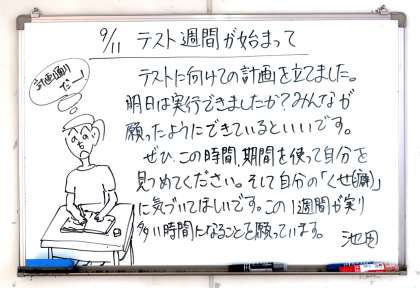 9/11 テスト週間が始まって
計画通り
だー!
テストに向けての計画を立てました。
明日は実行できましたか?みんなが
願ったようにできているといいです。
ぜひ、この時間、期間を使って自分を
見つめてください。そして自分の「くせ(癖)」
に気づいてほしいです。この1週間が実り
多い時間になることを願っています。
池田